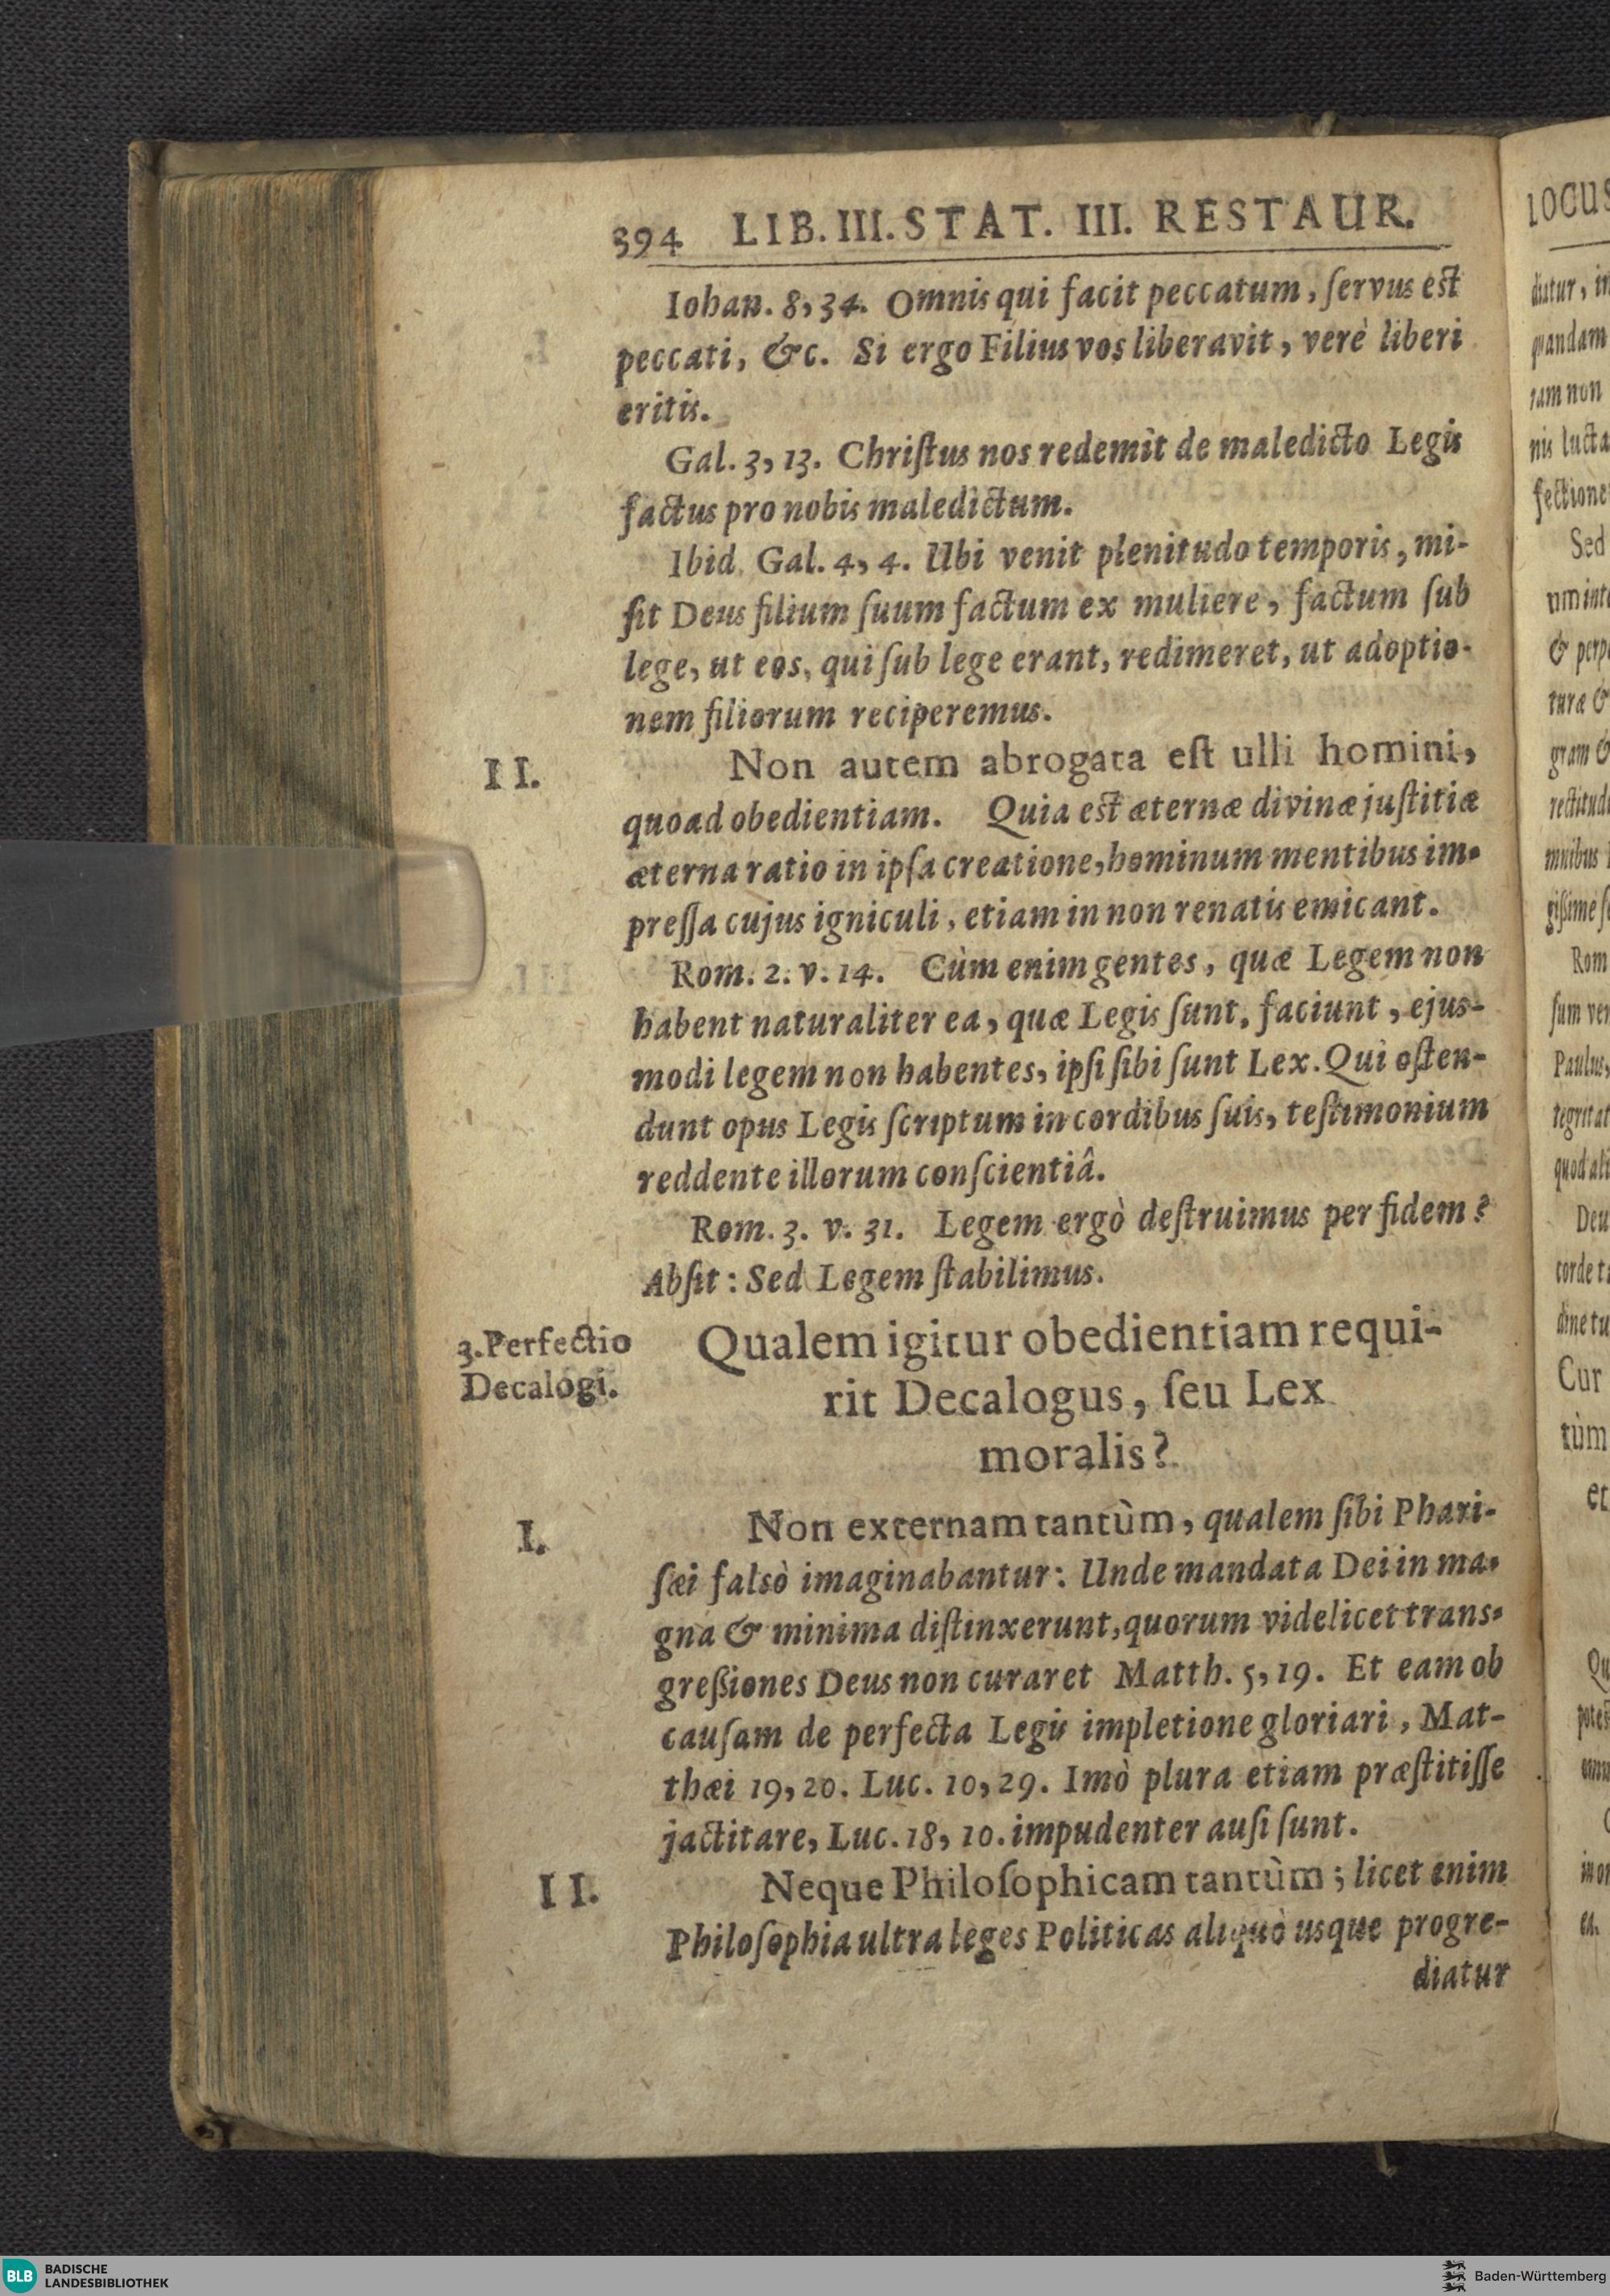 394 LIB. III. STAT. III. RESTAUR.
Iohan. 8, 34. Omnis qui facit peccatum, ſervus est
peccati, &c. Si ergo Filius vos liberavit, verè liberi
eritis.
Gal. 3, 13. Chriſtus nos redemit de maledicto Legis
factus pro nobis maledictum.
Ibid. Gal. 4, 4. Ubi venit plenitudo temporis, mi-
ſit Deus filium ſuum factum ex muliere, factum ſub
lege, ut eos, qui ſub lege erant, redimeret, ut adoptio-
nem filiorum reciperemus.
II. Non autem abrogata eſt ulli homini,
quoad obedientiam. Quia est æternæ divinæ juſtitiæ
æterna ratio in ipſa creatione, hominum mentibus im-
preſſa cujus igniculi, etiam in non renatis emicant.
Rom. 2. v. 14. Cùm enim gentes, quæ Legem non
habent naturaliter ea, quæ Legis ſunt, faciunt, ejus-
modi legem non habentes, ipſi ſibi ſunt Lex. Qui oſten-
dunt opus Legis ſcriptum in cordibus ſuis, teſtimonium
reddente illorum conſcientiâ.
Rom. 3. v. 31. Legem ergò deſtruimus per fidem?
Abſit: Sed Legem ſtabilimus.
3. Perfectio
Decalogi.
Qualem igitur obedientiam requi-
rit Decalogus, ſeu Lex
moralis?
I. Non externam tantùm, qualem ſibi Phari-
ſæi falsò imaginabantur: Unde mandata Dei in ma-
gna & minima diſtinxerunt, quorum videlicet trans-
greßiones Deus non curaret Matth. 5, 19. Et eam ob
cauſam de perfecta Legis impletione gloriari, Mat-
thæi 19, 20. Luc. 10, 29. Imò plura etiam præſtitiſſe
jactitare, Luc. 18, 10. impudenter auſi ſunt.
II. Neque Philoſophicam tantùm; licet enim
Philoſophia ultra leges Politicas aliquò usque progre-
diatur
LOCUS
quandam
nis lucta
Sed
Rom
Paulus,
Cur
tùm
et
BLB BADISCHE
LANDESBIBLIOTHEK
Baden-Württemberg